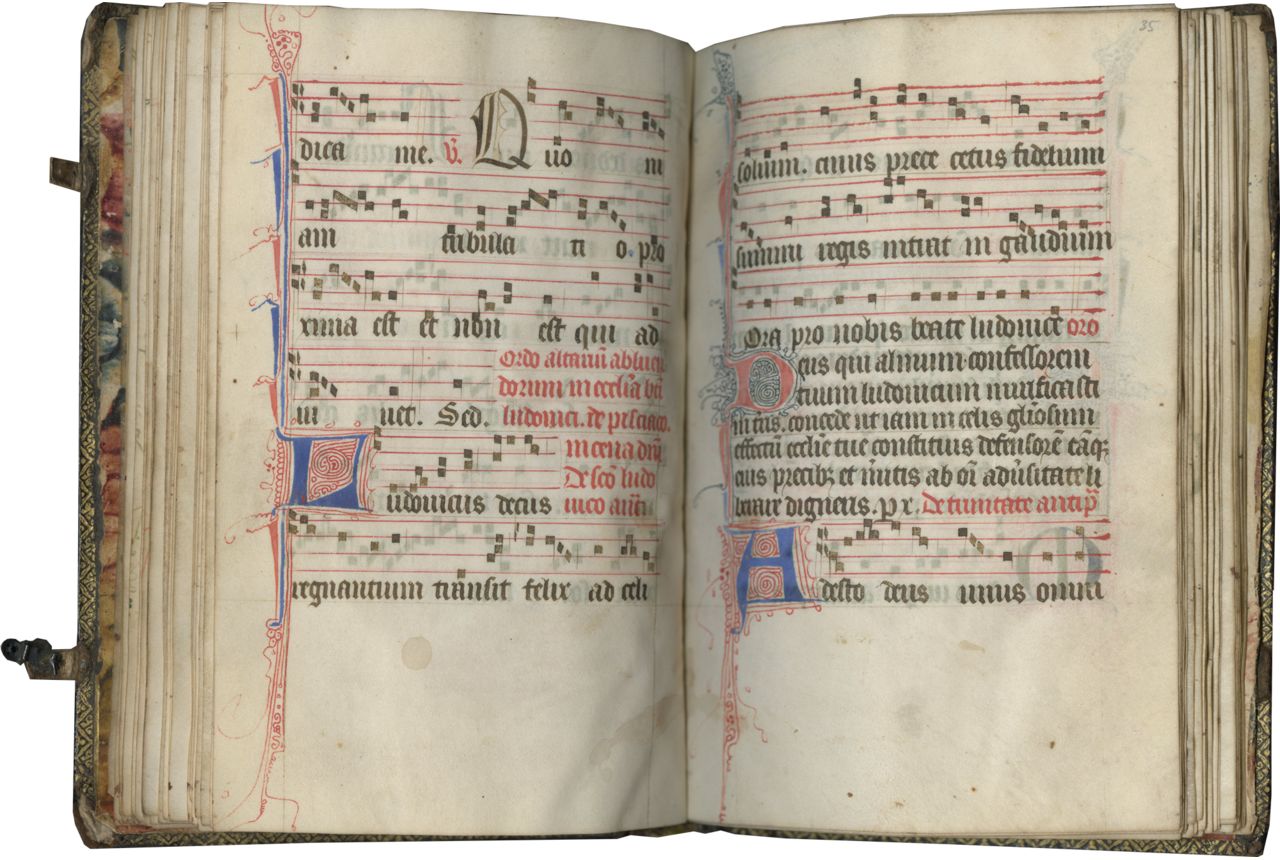 dica me. v. Quo ni
am tribula ti o. pro
xima est et non est qui ad
Ordo altariū abluen
iu uet. Sed.
dorum in ecclia bti
ludouici. de pissiaco.
in cena dni
De sco ludo
Ludouicus decus
uico anti
regnantium transit felix ad celi
35
solium. cuius prece cetus fidelium
summi regis intrat in gaudium
Ora pro nobis beate ludouice oro
Deus qui almum confessorem
tuum ludouicum mirificasti
in tris. concede ut iam in celis gliosum
effectū ecclie tue constituas defensorē eāq;
eius precibz et mitis ab oi aduersitate li
berare digneris. p x. De trinitate antip
Adesto deus unus omni